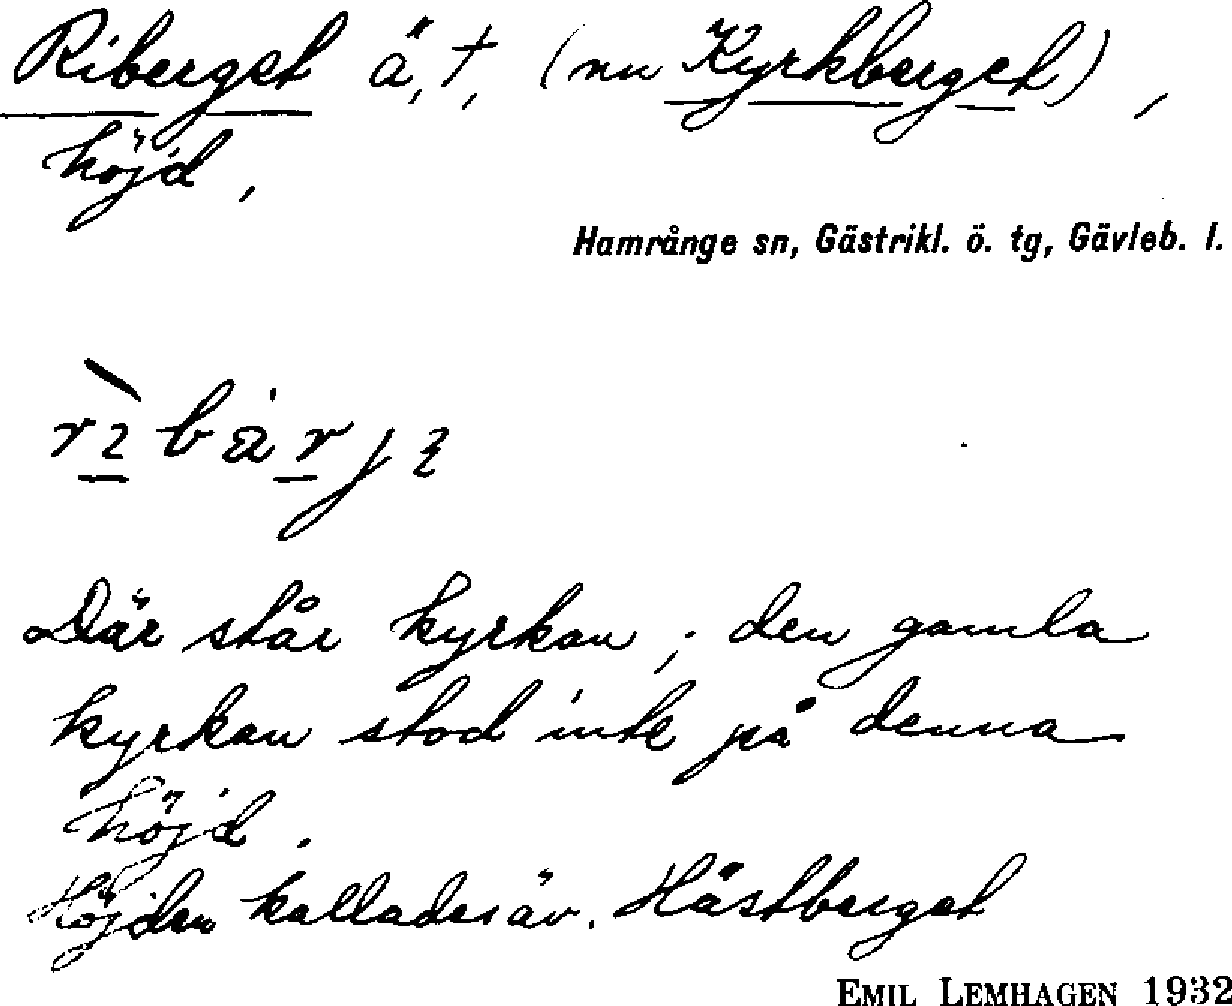 Riberget ä, t, (nu Kyrkberget),
höjd,
Hamrånge sn, Gästrikl. ö. tg, Gävleb. l.
Där står kyrkan; den gamla
kyrkan stod inte på denna
höjd.
Höjden kallades äv. Hästberget
EMIL LEMHAGEN 1932